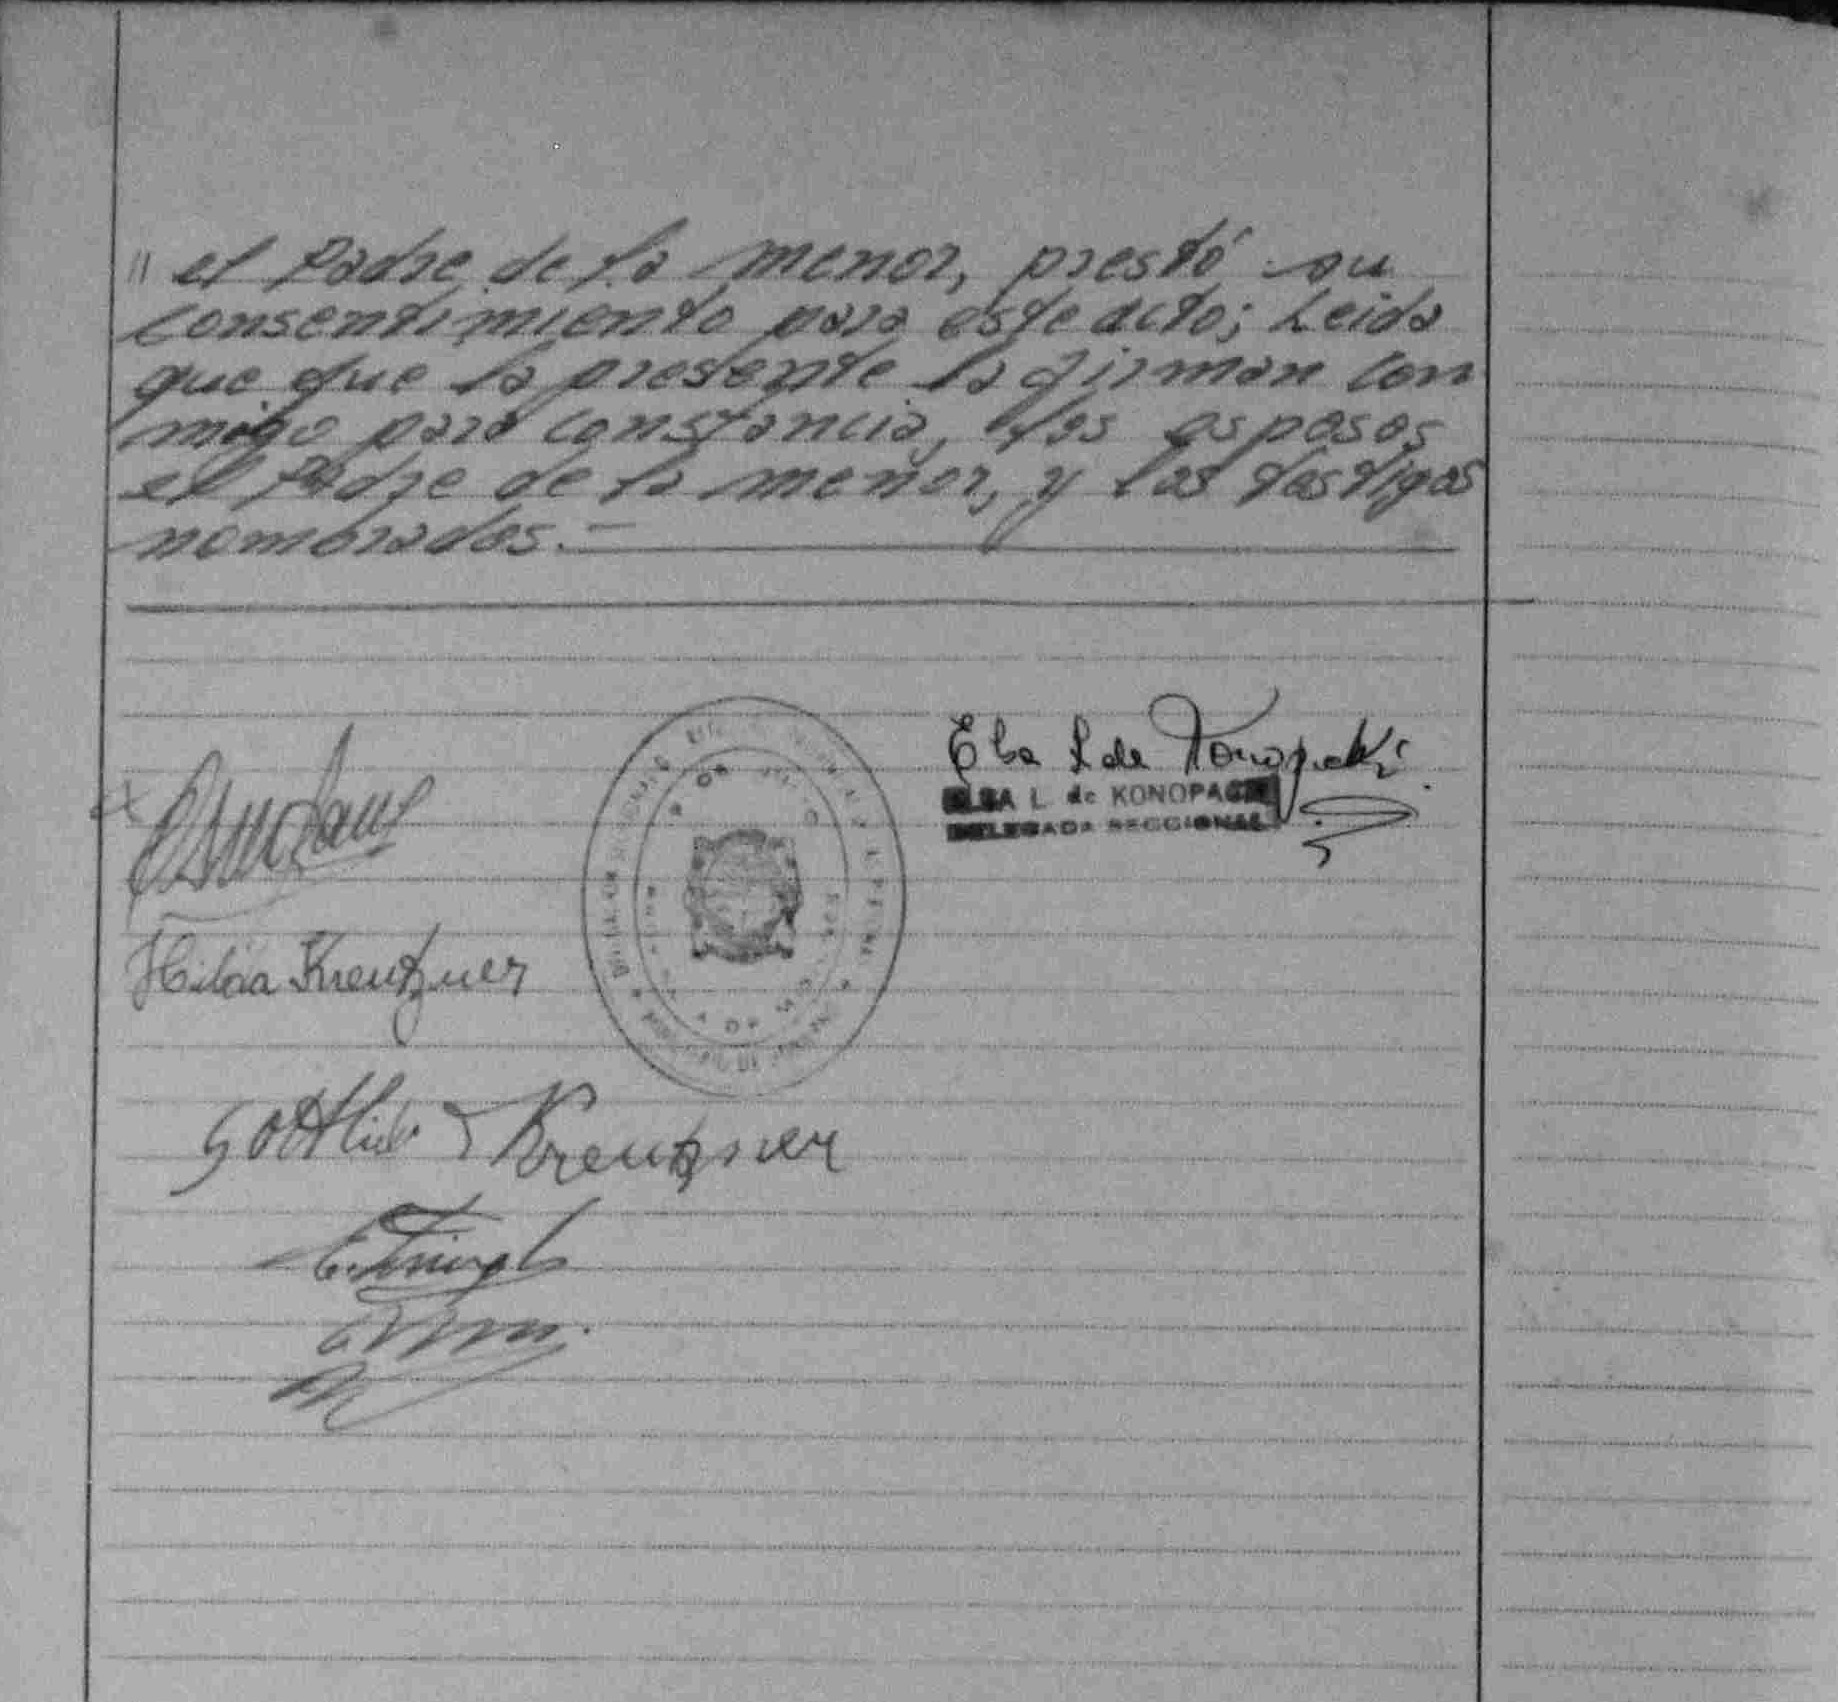 " el Padre de la menor, prestó su
consentimiento para este acto; Leida
que fue la presente la firman con
migo para constancia, los esposos
el Padre de la menor, y los testigos
nombrados.-
Elsa L de Konopacki
ELSA L. de KONOPACKI
DELEGADA SECCIONAL
Hilda Kreutzner
Gottlieb Kreutzner